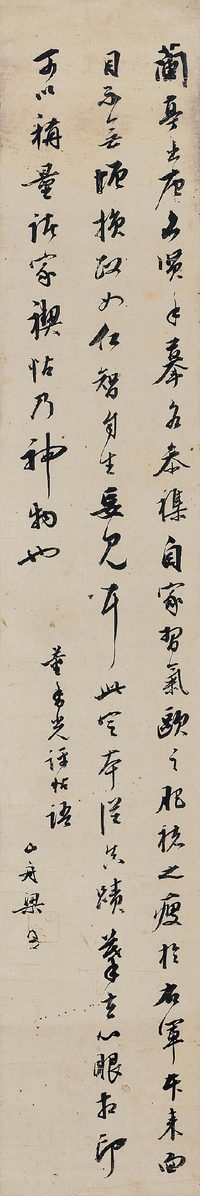 蘭亭出唐名賢手摹各參雜自家習氣歐之肥褚之瘦於右軍本来面
目不無增損政如仁智自生妄見耳此定本從真蹟摹立心眼相印
可以稱量諸家禊帖乃神物也
董香光評帖語
山舟梁同書